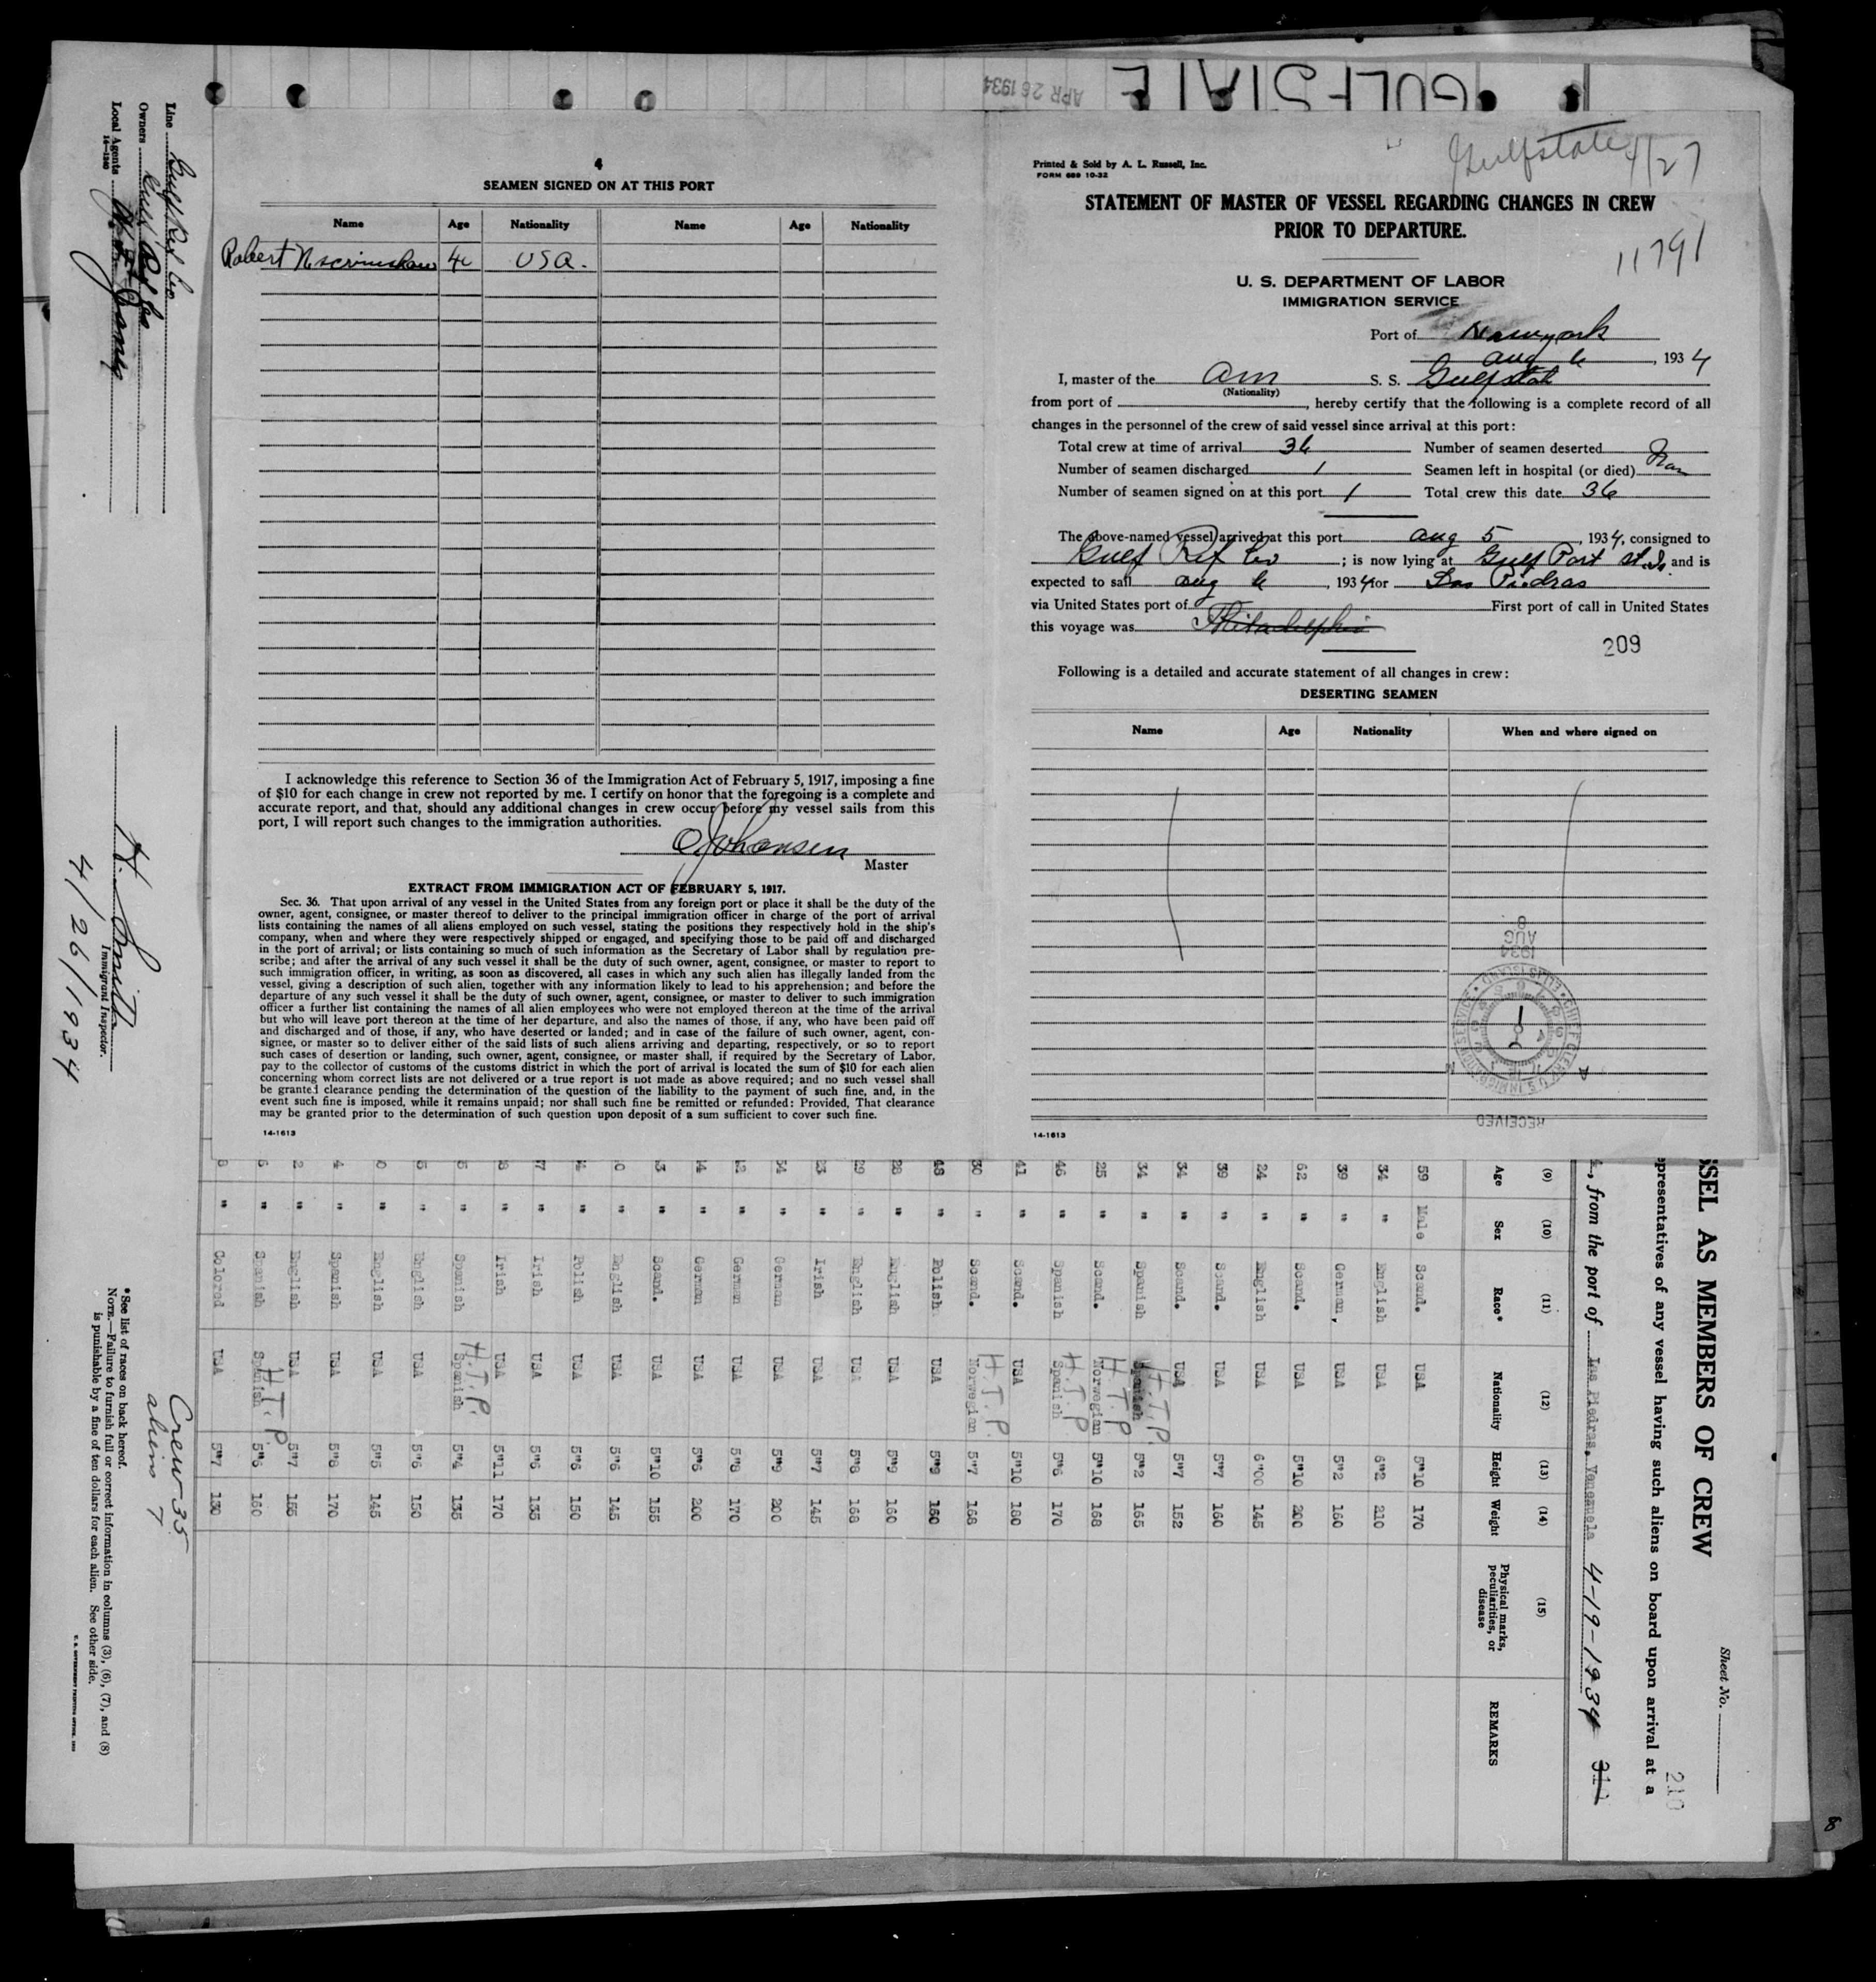 GULFSTATE
APR 26 1934
4
SEAMEN SIGNED ON AT THIS PORT
Name Age Nationality Name Age Nationality
Robert N USA.
I acknowledge this reference to Section 36 of the Immigration Act of February 5, 1917, imposing a fine
of $10 for each change in crew not reported by me. I certify on honor that the foregoing is a complete and
accurate report, and that, should any additional changes in crew occur before my vessel sails from this
port, I will report such changes to the immigration authorities.
O Johansen
Master
EXTRACT FROM IMMIGRATION ACT OF FEBRUARY 5, 1917.
Sec. 36. That upon arrival of any vessel in the United States from any foreign port or place it shall be the duty of the
owner, agent, consignee, or master thereof to deliver to the principal immigration officer in charge of the port of arrival
lists containing the names of all aliens employed on such vessel, stating the positions they respectively hold in the ship's
company, when and where they were respectively shipped or engaged, and specifying those to be paid off and discharged
in the port of arrival; or lists containing so much of such information as the Secretary of Labor shall by regulation pre-
scribe; and after the arrival of any such vessel it shall be the duty of such owner, agent, consignee, or master to report to
such immigration officer, in writing, as soon as discovered, all cases in which any such alien has illegally landed from the
vessel, giving a description of such alien, together with any information likely to lead to his apprehension; and before the
departure of any such vessel it shall be the duty of such owner, agent, consignee, or master to deliver to such immigration
officer a further list containing the names of all alien employees who were not employed thereon at the time of the arrival
but who will leave port thereon at the time of her departure, and also the names of those, if any, who have been paid off
and discharged and of those, if any, who have deserted or landed; and in case of the failure of such owner, agent, con-
signee, or master so to deliver either of the said lists of such aliens arriving and departing, respectively, or so to report
such cases of desertion or landing, such owner, agent, consignee, or master shall, if required by the Secretary of Labor,
pay to the collector of customs of the customs district in which the port of arrival is located the sum of $10 for each alien
concerning whom correct lists are not delivered or a true report is not made as above required; and no such vessel shall
be granted clearance pending the determination of the question of the liability to the payment of such fine, and, in the
event such fine is imposed, while it remains unpaid; nor shall such fine be remitted or refunded: Provided, That clearance
may be granted prior to the determination of such question upon deposit of a sum sufficient to cover such fine.
14-1613
Gulfstate 4/27
Printed & Sold by A. L. Russell, Inc.
FORM 689 10-32
STATEMENT OF MASTER OF VESSEL REGARDING CHANGES IN CREW
PRIOR TO DEPARTURE.
11791
U. S. DEPARTMENT OF LABOR
IMMIGRATION SERVICE
Port of New york
Aug 6, 1934
I, master of the Am S. S. Gulfstate
(Nationality)
from port of , hereby certify that the following is a complete record of all
changes in the personnel of the crew of said vessel since arrival at this port:
Total crew at time of arrival 36 Number of seamen deserted
Number of seamen discharged 1 Seamen left in hospital (or died)
Number of seamen signed on at this port 1 Total crew this date 36
The above-named vessel arrived at this port Aug 5, 1934, consigned to
Gulf Ref Co; is now lying at Gulf Port St. I. and is
expected to sail Aug 6, 1934 for Las Piedras
via United States port of First port of call in United States
this voyage was Philadelphia
209
Following is a detailed and accurate statement of all changes in crew:
DESERTING SEAMEN
Name Age Nationality When and where signed on
1934
AUG
6
CHIEF CLERK U.S. IMMIGRATION SERVICE • ELLIS ISLAND
RECEIVED
14-1613
Sheet No.
210
SSEL AS MEMBERS OF CREW
epresentatives of any vessel having such aliens on board upon arrival at a
, from the port of Las Piedras, Venezuela 4-19-1934
(9) (10) (11) (12) (13) (14) (15)
Age Sex Race* Nationality Height Weight Physical marks, peculiarities, or disease REMARKS
59 Male Scand. USA 5"10 170
34 " English USA 6"2 210
39 " German USA 5"2 160
62 " Scand. USA 5"10 200
24 " English USA 6"00 145
39 " Scand. USA 5"7 160
34 " Scand. USA 5"7 152
34 " Spanish Spanish H.T.P. 5"2 165
25 " Scand. Norwegian H.T.P 5"10 168
46 " Spanish Spanish H.T.P 5"6 170
41 " Scand. USA 5"10 180
30 " Scand. Norwegian H.T.P. 5"7 168
48 " Polish USA 5"9 150
28 " English USA 5"9 160
29 " English USA 5"8 168
23 " Irish USA 5"7 145
54 " German USA 5"9 200
42 " German USA 5"8 170
44 " German USA 5"6 200
3 " Scand. USA 5"10 155
0 " English USA 5"6 145
4 " Polish USA 5"6 150
7 " Irish USA 5"6 135
8 " Irish USA 5"11 170
5 " Spanish Spanish H.T.P. 5"4 135
5 " English USA 5"6 150
0 " English USA 5"5 145
4 " Spanish USA 5"8 170
2 " English USA 5"7 155
6 " Spanish Spanish H.T.P 5"6 160
8 " Colored USA 5"7 130
Line Gulf Ref Co
Owners Gulf Ref Co
Local Agents
14-1240
H. Smith
Immigrant Inspector.
4/26/1934
Crew 35
aliens 7
*See list of races on back hereof.
NOTE.—Failure to furnish full or correct information in columns (3), (6), (7), and (8)
is punishable by a fine of ten dollars for each alien. See other side.
U. S. GOVERNMENT PRINTING OFFICE
8